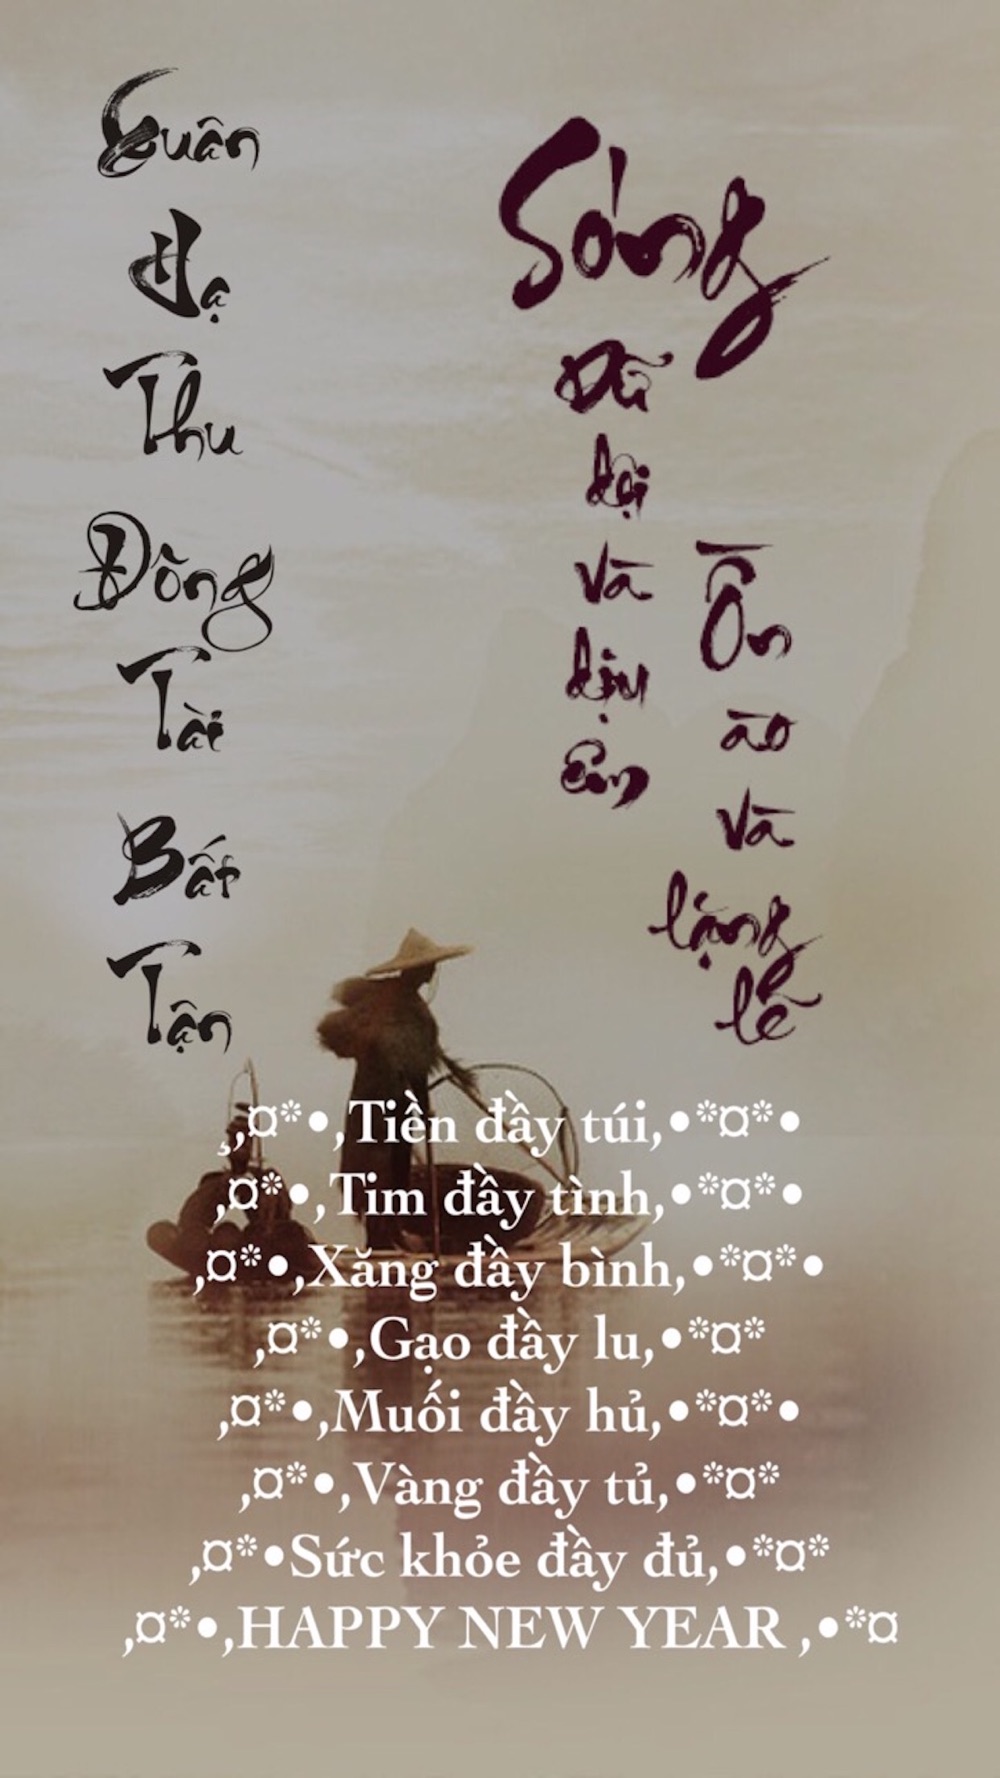 Xuân
Hạ
Thu
Đông
Tài
Bất
Tận
Sóng
Dữ
dội
và
dịu
êm
Ồn
ào
và
lặng
lẽ
¸,¤*•,Tiền đầy túi,•*¤*•
,¤*•,Tim đầy tình,•*¤*•
,¤*•,Xăng đầy bình,•*¤*•
,¤*•,Gạo đầy lu,•*¤*
,¤*•,Muối đầy hủ,•*¤*•
,¤*•,Vàng đầy tủ,•*¤*
,¤*•Sức khỏe đầy đủ,•*¤*
,¤*•,HAPPY NEW YEAR ,•*¤